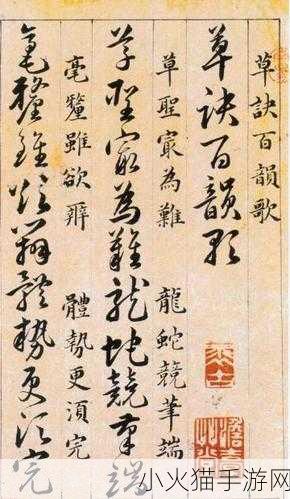 草訣百韻歌
草訣百韻歌
草聖㝡為難　龍蛇競筆端
草聖㝡為難龍蛇競筆端
毫釐雖欲辨　體勢更須完
毫釐雖欲辨體勢更須完
小火猫手游网